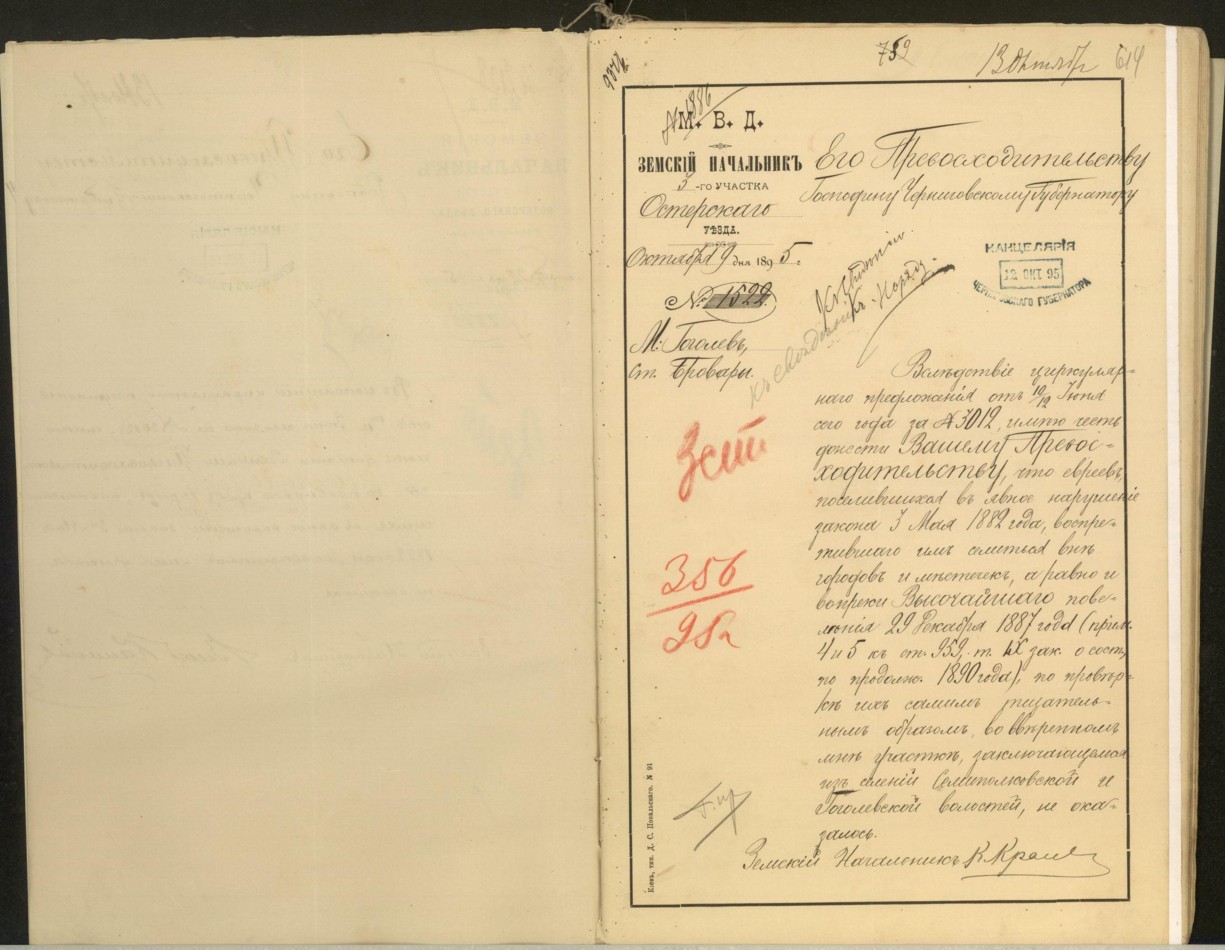 759
13 Октября 614
9078
№ 1886
М. В. Д.
ЗЕМСКІЙ НАЧАЛЬНИКЪ
3-го УЧАСТКА
Остерскаго
УѢЗДА.
Октября 9 дня 1895 г.
№ 1522.
М. Гоголевъ,
ст. Бровары.
Его Превосходительству
Господину Черниговскому Губернатору
КАНЦЕЛЯРІЯ
12 ОКТ. 95
ЧЕРНИГОВСКАГО ГУБЕРНАТОРА
Вслѣдствіе циркуляр-
наго предложенія отъ 10/12 Іюня
сего года за № 3012, имѣю честь
донести Вашему Превос-
ходительству, что евреевъ,
поселившихся въ явное нарушеніе
закона 3 Мая 1882 года, воспре-
тившаго имъ селиться внѣ
городовъ и мѣстечекъ, а равно и
вопреки Высочайшаго пове-
лѣнія 29 Декабря 1887 года (прим.
4 и 5 къ ст. 959, т. IX зак. о сост.,
по продолж. 1890 года), по провѣр-
кѣ ихъ самымъ тщатель-
нымъ образомъ, во ввѣренномъ
мнѣ участкѣ, заключающемся
изъ селеній Семиполковской и
Гоголевской волостей, не ока-
залось.
Земскій Начальникъ К.
3 ст
356
95 г
Кіевъ, тип. Д. С. Повальскаго. № 91